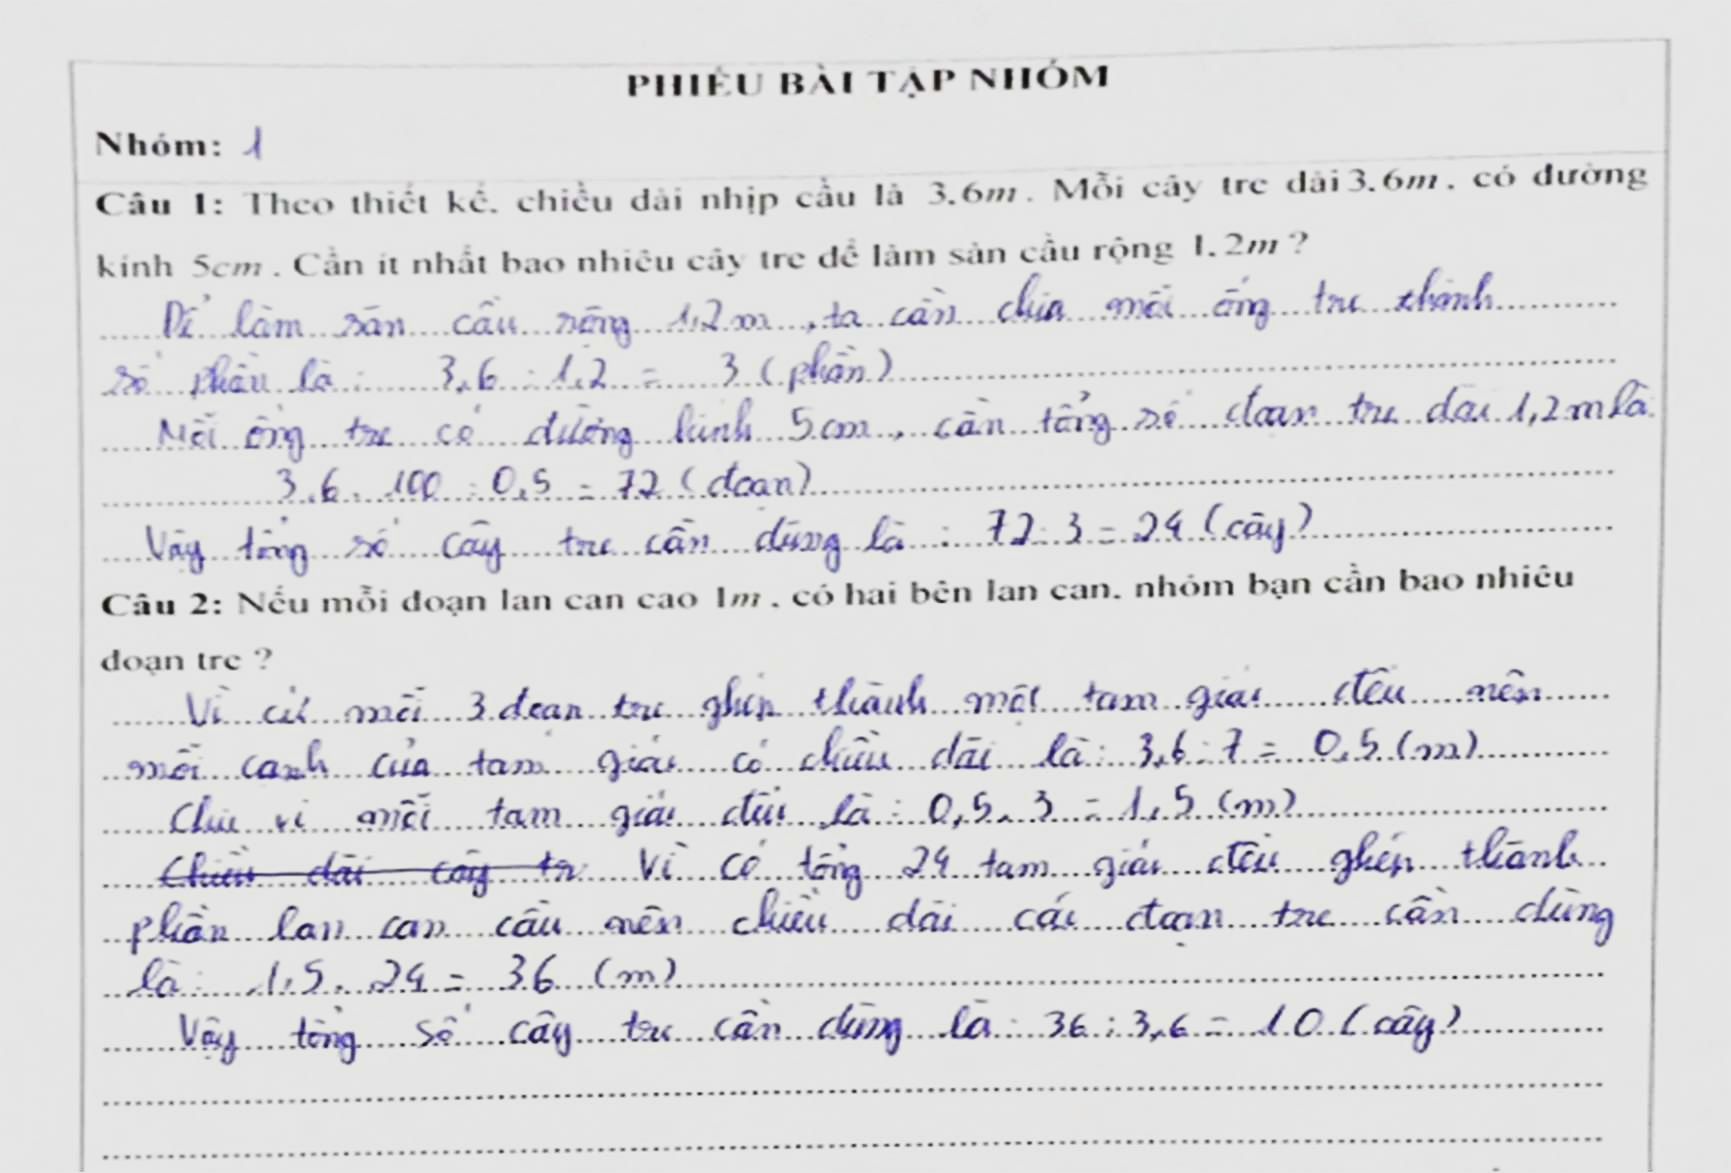 PHIẾU BÀI TẬP NHÓM
Nhóm: 1
Câu 1: Theo thiết kế, chiều dài nhịp cầu là 3.6m. Mỗi cây tre dài 3.6m, có đường
kính 5cm. Cần ít nhất bao nhiêu cây tre để làm sàn cầu rộng 1.2m?
Để làm sàn cầu rộng 1,2m, ta cần chia mỗi ống tre thành
số phần là: 3,6 : 1,2 = 3 (phần)
Mỗi ống tre có đường kính 5cm, cần tổng số đoạn tre dài 1,2m là
3,6. 100 : 0,5 = 72 (đoạn)
Vậy tổng số cây tre cần dùng là : 72 : 3 = 24 (cây)
Câu 2: Nếu mỗi đoạn lan can cao 1m, có hai bên lan can, nhóm bạn cần bao nhiêu
đoạn tre ?
Vì cứ mỗi 3 đoạn tre ghép thành một tam giác đều nên
mỗi cạnh của tam giác có chiều dài là: 3,6 : 7 = 0,5 (m)
Chu vi mỗi tam giác đều là : 0,5 . 3 = 1,5 (m)
Chiều dài cây tr Vì có tổng 24 tam giác đều ghép thành
phần lan can cầu nên chiều dài các đoạn tre cần dùng
là: 1,5 . 24 = 36 (m)
Vậy tổng số cây tre cần dùng là: 36 : 3,6 = 10 (cây)